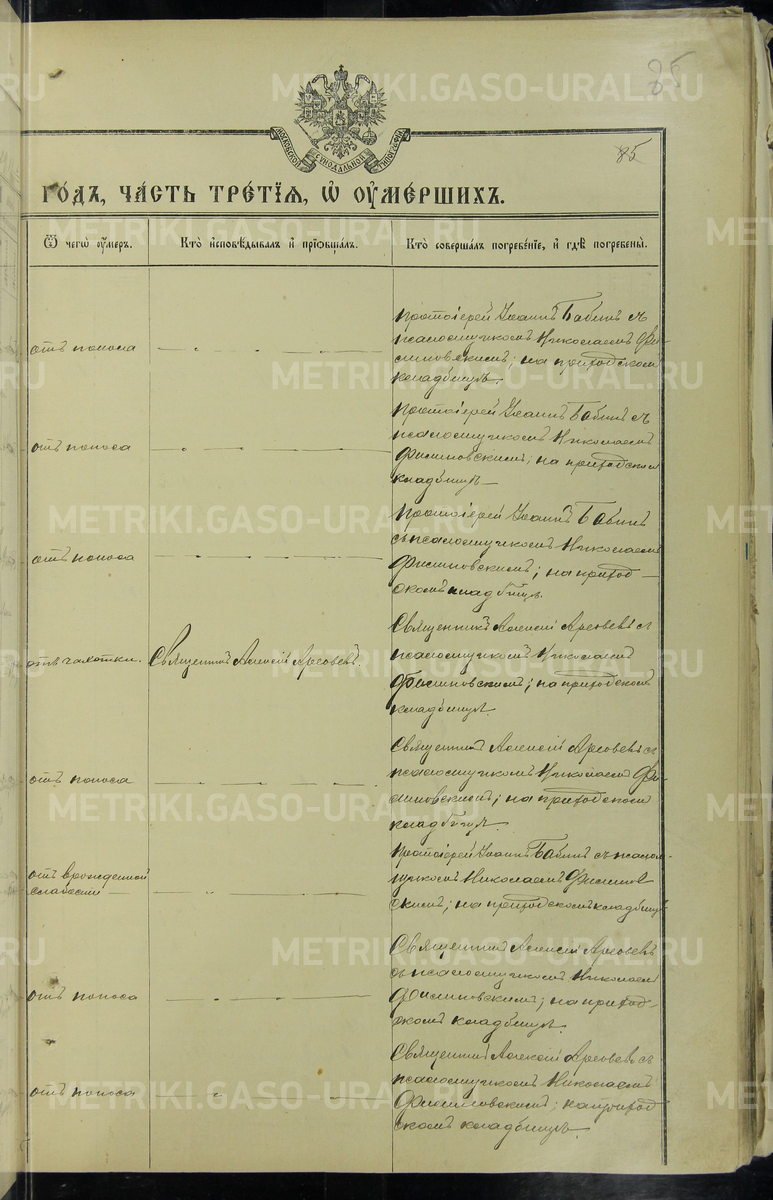 85
МОСКОВСКОЙ СѴНОДАЛЬНОЙ ТИПОГРАФІИ
85
ГОДЪ, ЧАСТЬ ТРЕТІЯ, Ѡ ОУМЕРШИХЪ.
Ѿ чегѡ оумеръ.
Кто исповѣдывалъ и прїобщалъ.
Кто совершалъ погребенїе, и гдѣ погребены.
отъ поноса
Протоіерей Іоаннъ Бабинъ съ
псаломщикомъ Николаемъ Фи-
линовскимъ; на приходскомъ
кладбищѣ.
отъ поноса
Протоіерей Іоаннъ Бабинъ съ
псаломщикомъ Николаемъ
Филиновскимъ; на приходском
кладбищѣ
отъ поноса
Протоіерей Іоаннъ Бабинъ
съ псаломщикомъ Николаемъ
Филиновскимъ; на приход-
скомъ кладбищѣ.
отъ чахотки.
Священникъ Алексій
Священникъ Алексій
съ
псаломщикомъ Николаемъ
Филиновскимъ; на приходскомъ
кладбищѣ.
отъ поноса
Священникъ Алексій
съ
псаломщикомъ Николаемъ Фи-
линовскимъ; на приходском
кладбищѣ.
отъ врожденной
слабости
Протоіерей Іоаннъ Бабинъ съ псалом-
щикомъ Николаемъ Филинов
скимъ; на приходскомъ кладбищѣ
отъ поноса
Священникъ Алексій
съ псаломщикомъ Николаем
Филиновскимъ; на приход-
скомъ кладбищѣ.
отъ поноса
Священникъ Алексій
съ
псаломщикомъ Николаемъ
Филиновскимъ; на приход
скомъ кладбищѣ.
METRIKI.GASO-URAL.RU